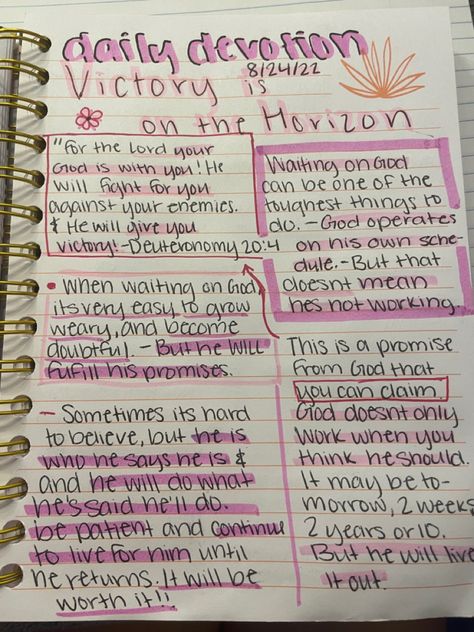 daily devotion
8/24/22
Victory is
on the Horizon
"For the Lord your
God is with you! He
will fight for you
against your enemies.
& He will give you
victory!-Deuteronomy 20:4
Waiting on God
can be one of the
toughest things to
do. - God operates
on his own sche-
dule.- But that
doesnt mean
hes not working.
• When waiting on God
its very easy to grow
weary, and become
doubtful - But he WILL
fufill his promises.
This is a promise
from God that
you can claim.
God doesnt only
work when you
think he should.
It may be to-
morrow, 2 weeks
2 years or 10.
But he will live
it out.
- Sometimes its hard
to believe, but he is
who he says he is &
and he will do what
he's said he'll do.
be patient and continue
to live for him until
he returns. It will be
worth it!!